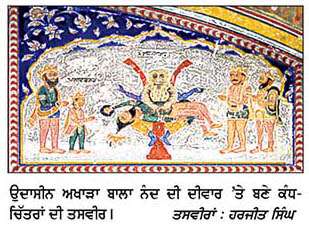 ਉਦਾਸੀਨ ਅਖਾੜਾ ਬਾਲਾ ਨੰਦ ਦੀ ਦੀਵਾਰ 'ਤੇ ਬਣੇ ਕੰਧ-
ਚਿੱਤਰਾਂ ਦੀ ਤਸਵੀਰ। ਤਸਵੀਰਾਂ : ਹਰਜੀਤ ਸਿੰਘ